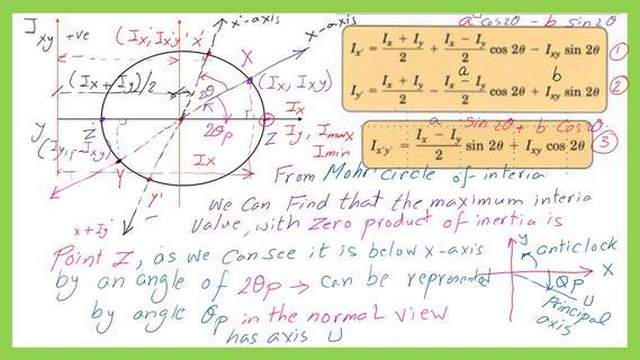 J xy +ve
x'-axis
x-axis
a cos2θ - b sin2θ
(Ix', Ix'y' x'
X
(Ix, Ixy)
(Ix + Iy)/2
2θ
2θp
Ix
Iy, Imax
Imin
Z' Z
(Iy, -Ixy)
Ix
Y
y'
x+Iy
Ix' = Ix + Iy / 2 + Ix - Iy / 2 cos 2θ - Ixy sin 2θ 1
a b
Iy' = Ix + Iy / 2 - Ix - Iy / 2 cos 2θ + Ixy sin 2θ 2
a sin2θ + b Cos2θ
Ix'y' = Ix - Iy / 2 sin 2θ + Ixy cos 2θ 3
From Mohr circle of interia
we can Find that the maximum interia
value, with Zero product of inertia is
Point Z, as we can see it is below x-axis
by an angle of 2θp → can be represented
by angle θp in the normal view
has axis U
y
anticlock
X
θp
U
Principal
axis